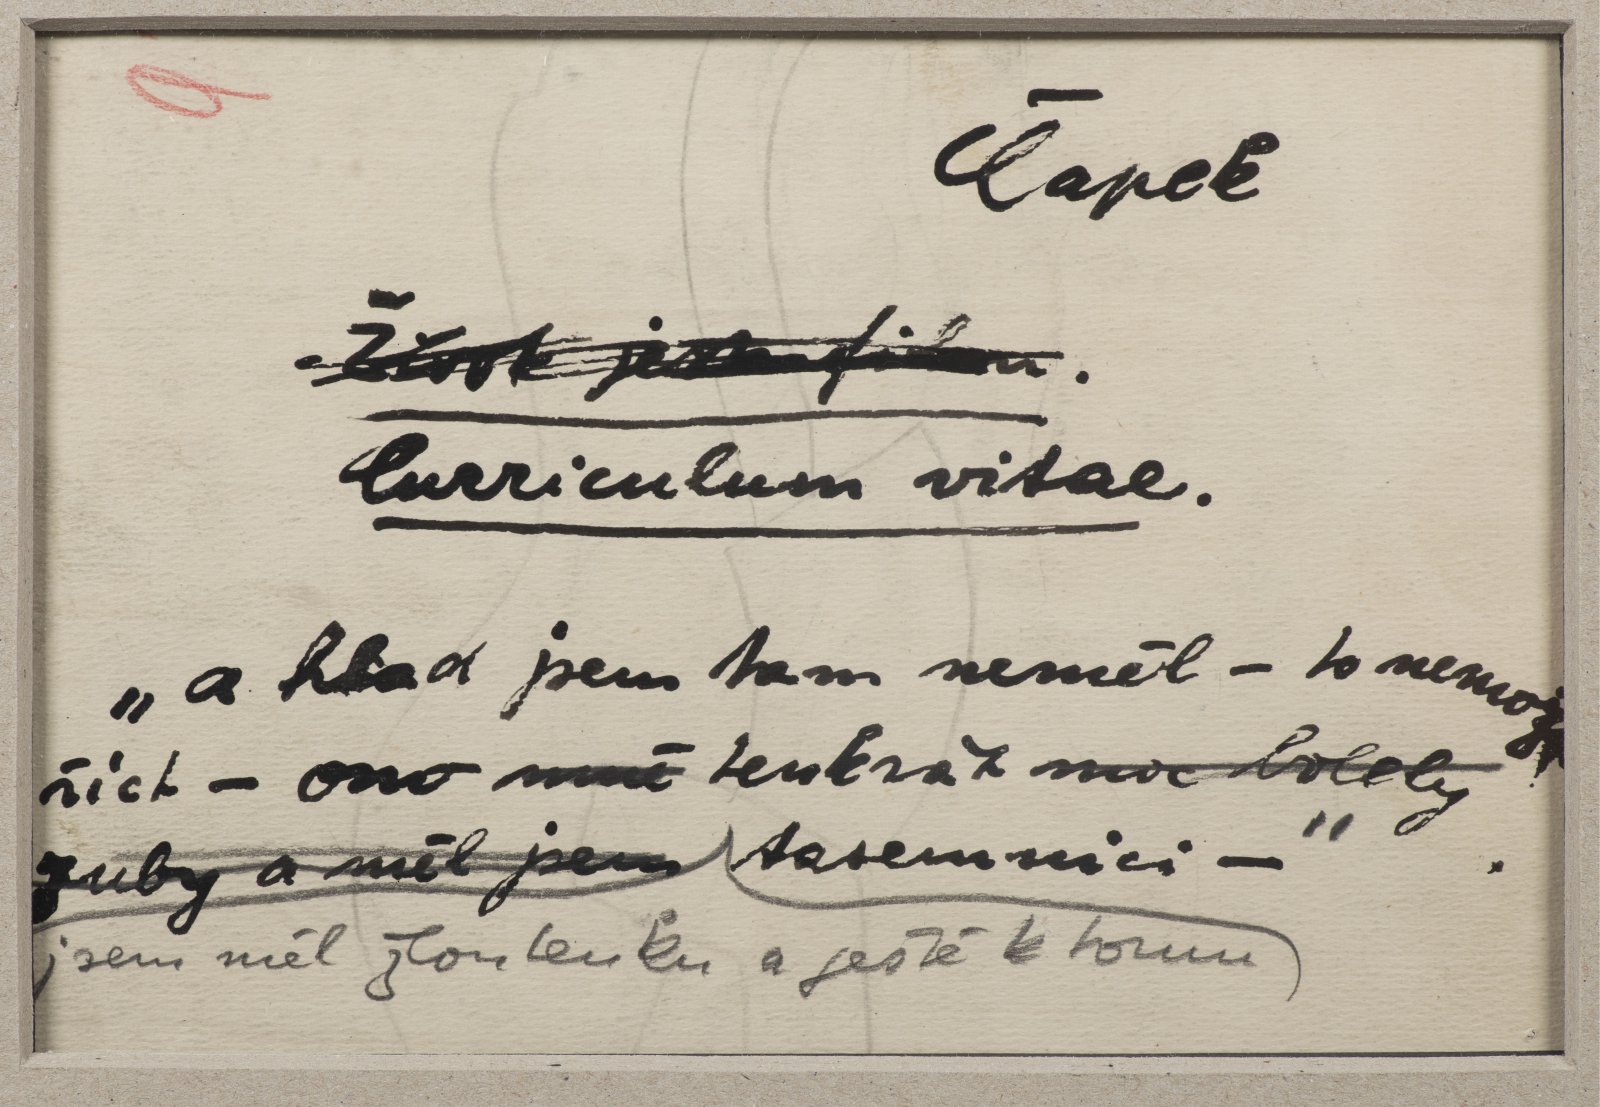 Čapek
Život jako film.
Curriculum vitae.
„a hlad jsem tam neměl – to nemož
řict – ono mně tenkrát moc bolely
zuby a měl jsem tasemnici – "
jsem měl žloutenku a ještě k tomu